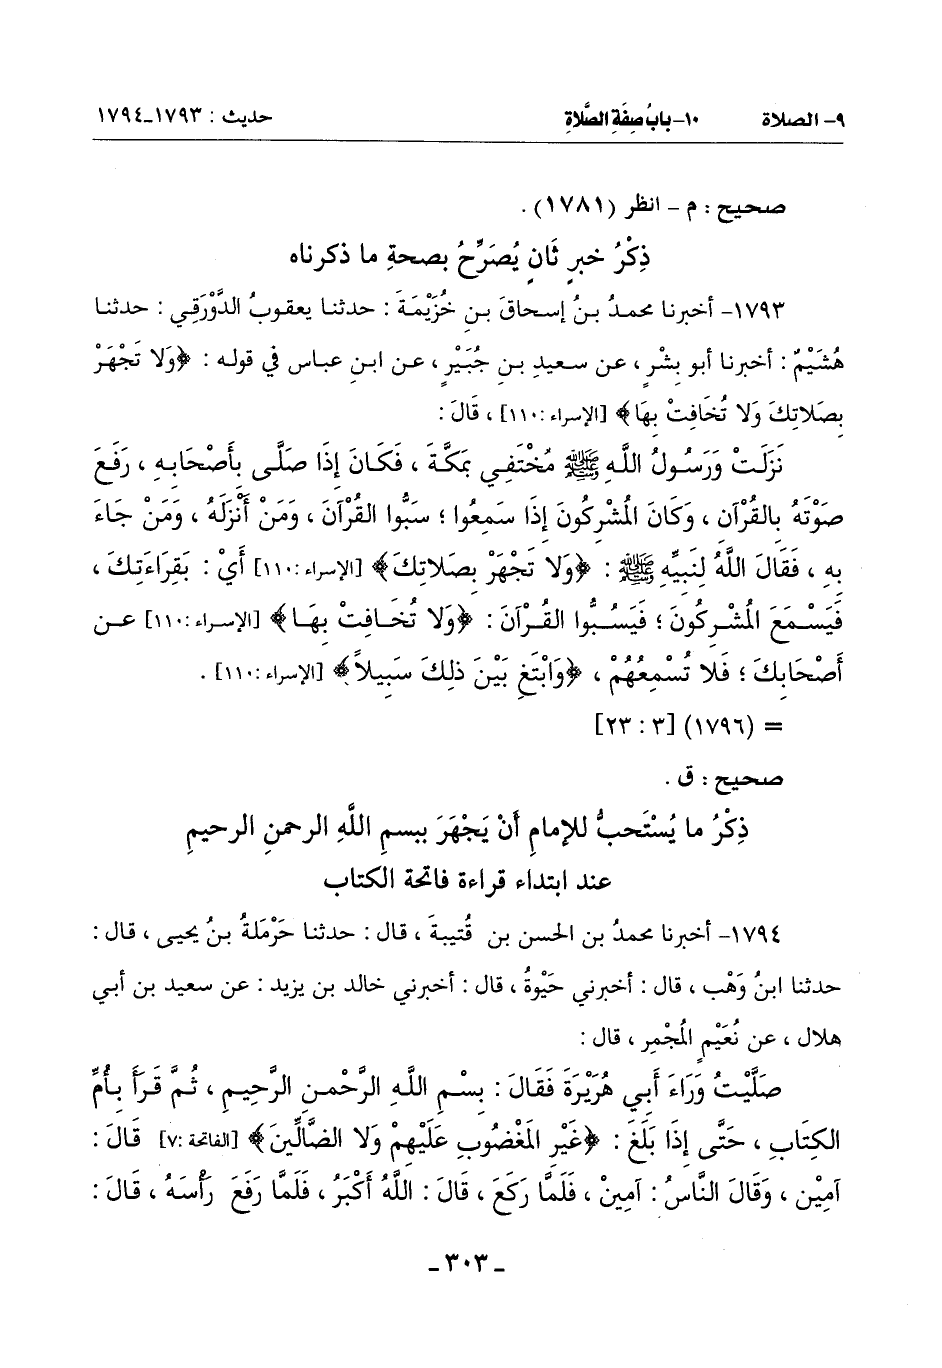 ٩- الصلاة ١٠- بابُ صِفَةِ الصَّلاةِ حديث : ١٧٩٣-١٧٩٤
صحيح : م - انظر (١٧٨١) .
ذِكْرُ خبرٍ ثَانٍ يُصَرِّحُ بصحةِ ما ذكرناه
١٧٩٣- أخبرنا محمدُ بنُ إسحاقَ بنِ خُزَيْمَةَ : حدثنا يعقوبُ الدَّوْرَقِي : حدثنا
هُشَيْمٌ : أخبرنا أبو بشْرٍ ، عن سعيدِ بنِ جُبَيْرٍ ، عن ابنِ عباس في قوله : ﴿وَلا تَجْهَرْ
بصَلاتِكَ وَلا تُخَافِتْ بهَا﴾ [الإسراء :١١٠] ، قَالَ :
نَزَلَتْ وَرَسُولُ اللَّهِ ﷺ مُخْتَفِي بمَكَّةَ ، فَكَانَ إِذَا صَلَّى بأَصْحَابهِ ، رَفَعَ
صَوْتَهُ بالقُرْآنِ ، وَكَانَ المُشْركُونَ إِذَا سَمِعُوا ؛ سَبُّوا القُرْآنَ ، وَمَنْ أَنْزَلَهُ ، وَمَنْ جَاءَ
بهِ ، فَقَالَ اللَّهُ لِنَبيِّهِ ﷺ : ﴿وَلا تَجْهَرْ بصَلاتِكَ﴾ [الإسراء :١١٠] أَيْ : بَقِرَاءَتِكَ ،
فَيَسْمَعَ المُشْركُونَ ؛ فَيَسُبُّوا القُرْآنَ : ﴿وَلا تُخَافِتْ بهَا﴾ [الإسراء :١١٠] عن
أَصْحَابكَ ؛ فَلا تُسْمِعُهُمْ ، ﴿وَابْتَغِ بَيْنَ ذلِكَ سَبيلاً﴾ [الإسراء :١١٠] .
= (١٧٩٦) [٣ : ٢٣]
صحيح : ق .
ذِكْرُ ما يُسْتَحبُّ للإمامِ أَنْ يَجْهَرَ ببسمِ اللَّهِ الرحمنِ الرحيمِ
عند ابتداء قراءة فاتحة الكتاب
١٧٩٤- أخبرنا محمدُ بن الحسن بن قُتيبةَ ، قال : حدثنا حَرْمَلةُ بنُ يحيى ، قال :
حدثنا ابنُ وَهْبٍ ، قال : أخبرني حَيْوةُ ، قال : أخبرني خالد بن يزيد : عن سعيد بن أبي
هلال ، عن نُعَيْمٍ المُجْمِرِ ، قال :
صَلَّيْتُ وَرَاءَ أَبي هُرَيْرَةَ فَقَالَ : بسْمِ اللَّهِ الرَّحْمنِ الرَّحيمِ ، ثُمَّ قَرَأَ بأُمِّ
الكِتَابِ ، حَتَّى إِذَا بَلَغَ : ﴿غَيْرِ المَغْضُوبِ عَلَيْهِمْ وَلا الضَّالِّينَ﴾ [الفاتحة :٧] قَالَ :
آمِيْن ، وَقَالَ النَّاسُ : آمِينْ ، فَلَمَّا رَكَعَ ، قَالَ : اللَّهُ أَكْبَرُ ، فَلَمَّا رَفَعَ رَأْسَهُ ، قَالَ :
- ٣٠٣ -